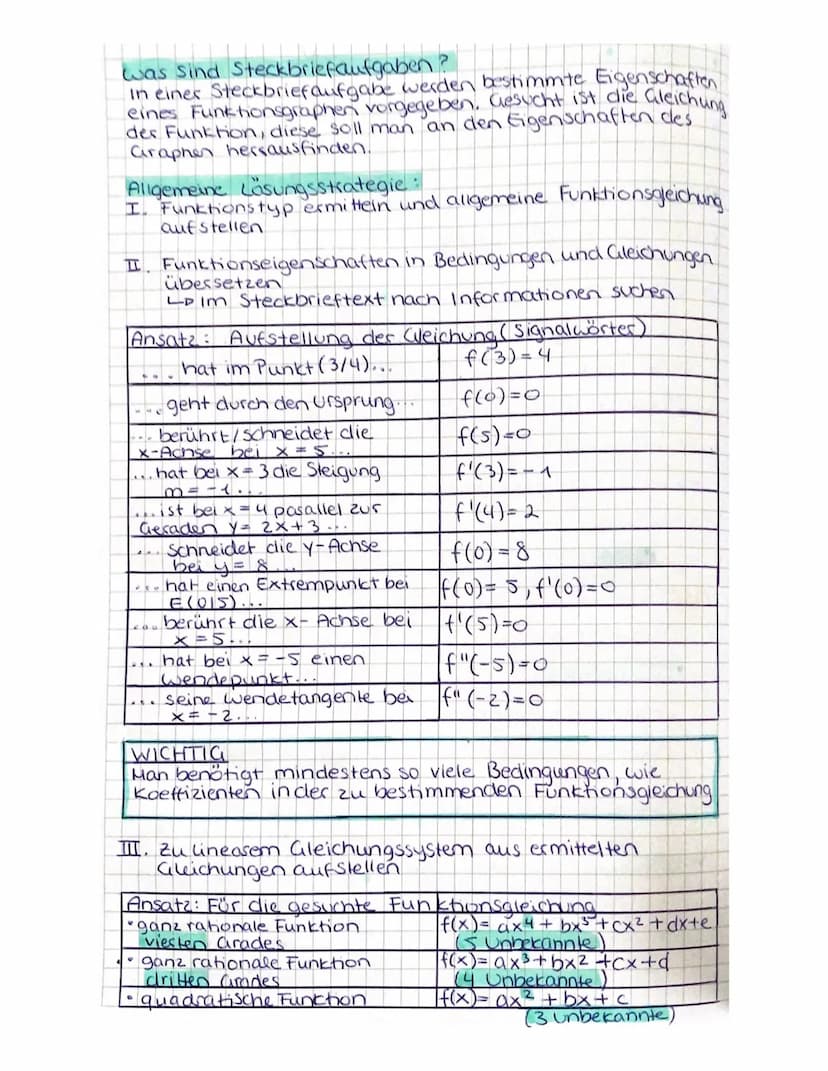 Was sind Steckbriefaufgaben?
In einer Steckbriefaufgabe werden bestimmte Eigenschaften
eines Funktionsgraphen vorgegeben. Gesucht ist die Gleichung
der Funktion, diese soll man an den Eigenschaften des
Graphen herrausfinden.
Allgemeine Lösungsstrategie:
I. Funktionstyp ermitteln und allgemeine Funktionsgleichung
aufstellen
II. Funktionseigenschaften in Bedingungen und Gleichungen
übersetzen
↳ im Steckbrieftext nach Informationen suchen
Ansatz: Aufstellung der Gleichung (Signalwörter)
.... hat im Punkt (3/4)... f(3)=4
....geht durch den Ursprung... f(0)=0
... berührt/schneidet die
x-Achse bei x=5... f(5)=0
...hat bei x=3 die Steigung
m=-1... f'(3)=-1
...ist bei x=4 parallel zur
Geraden y=2x+3... f'(4)=2
... schneidet die y-Achse
bei y=8... f(0)=8
... hat einen Extrempunkt bei
E(0|5)... f(0)=5, f'(0)=0
... berührt die x-Achse bei
x=5... f'(5)=0
... hat bei x=-5 einen
Wendepunkt... f"(-5)=0
... seine Wendetangente bei
x=-2... f"(-2)=0
WICHTIG
Man benötigt mindestens so viele Bedingungen, wie
Koeffizienten in der zu bestimmenden Funktionsgleichung
III. Zu linearem Gleichungssystem aus ermittelten
Gleichungen aufstellen
Ansatz: Für die gesuchte Funktionsgleichung
• ganz rationale Funktion f(x)= ax⁴+bx³+cx²+dx+e
vierten Grades (5 Unbekannte)
• ganz rationale Funktion f(x)= ax³+bx²+cx+d
dritten Grades (4 Unbekannte)
• quadratische Funktion f(x)= ax²+bx+c
(3 Unbekannte)